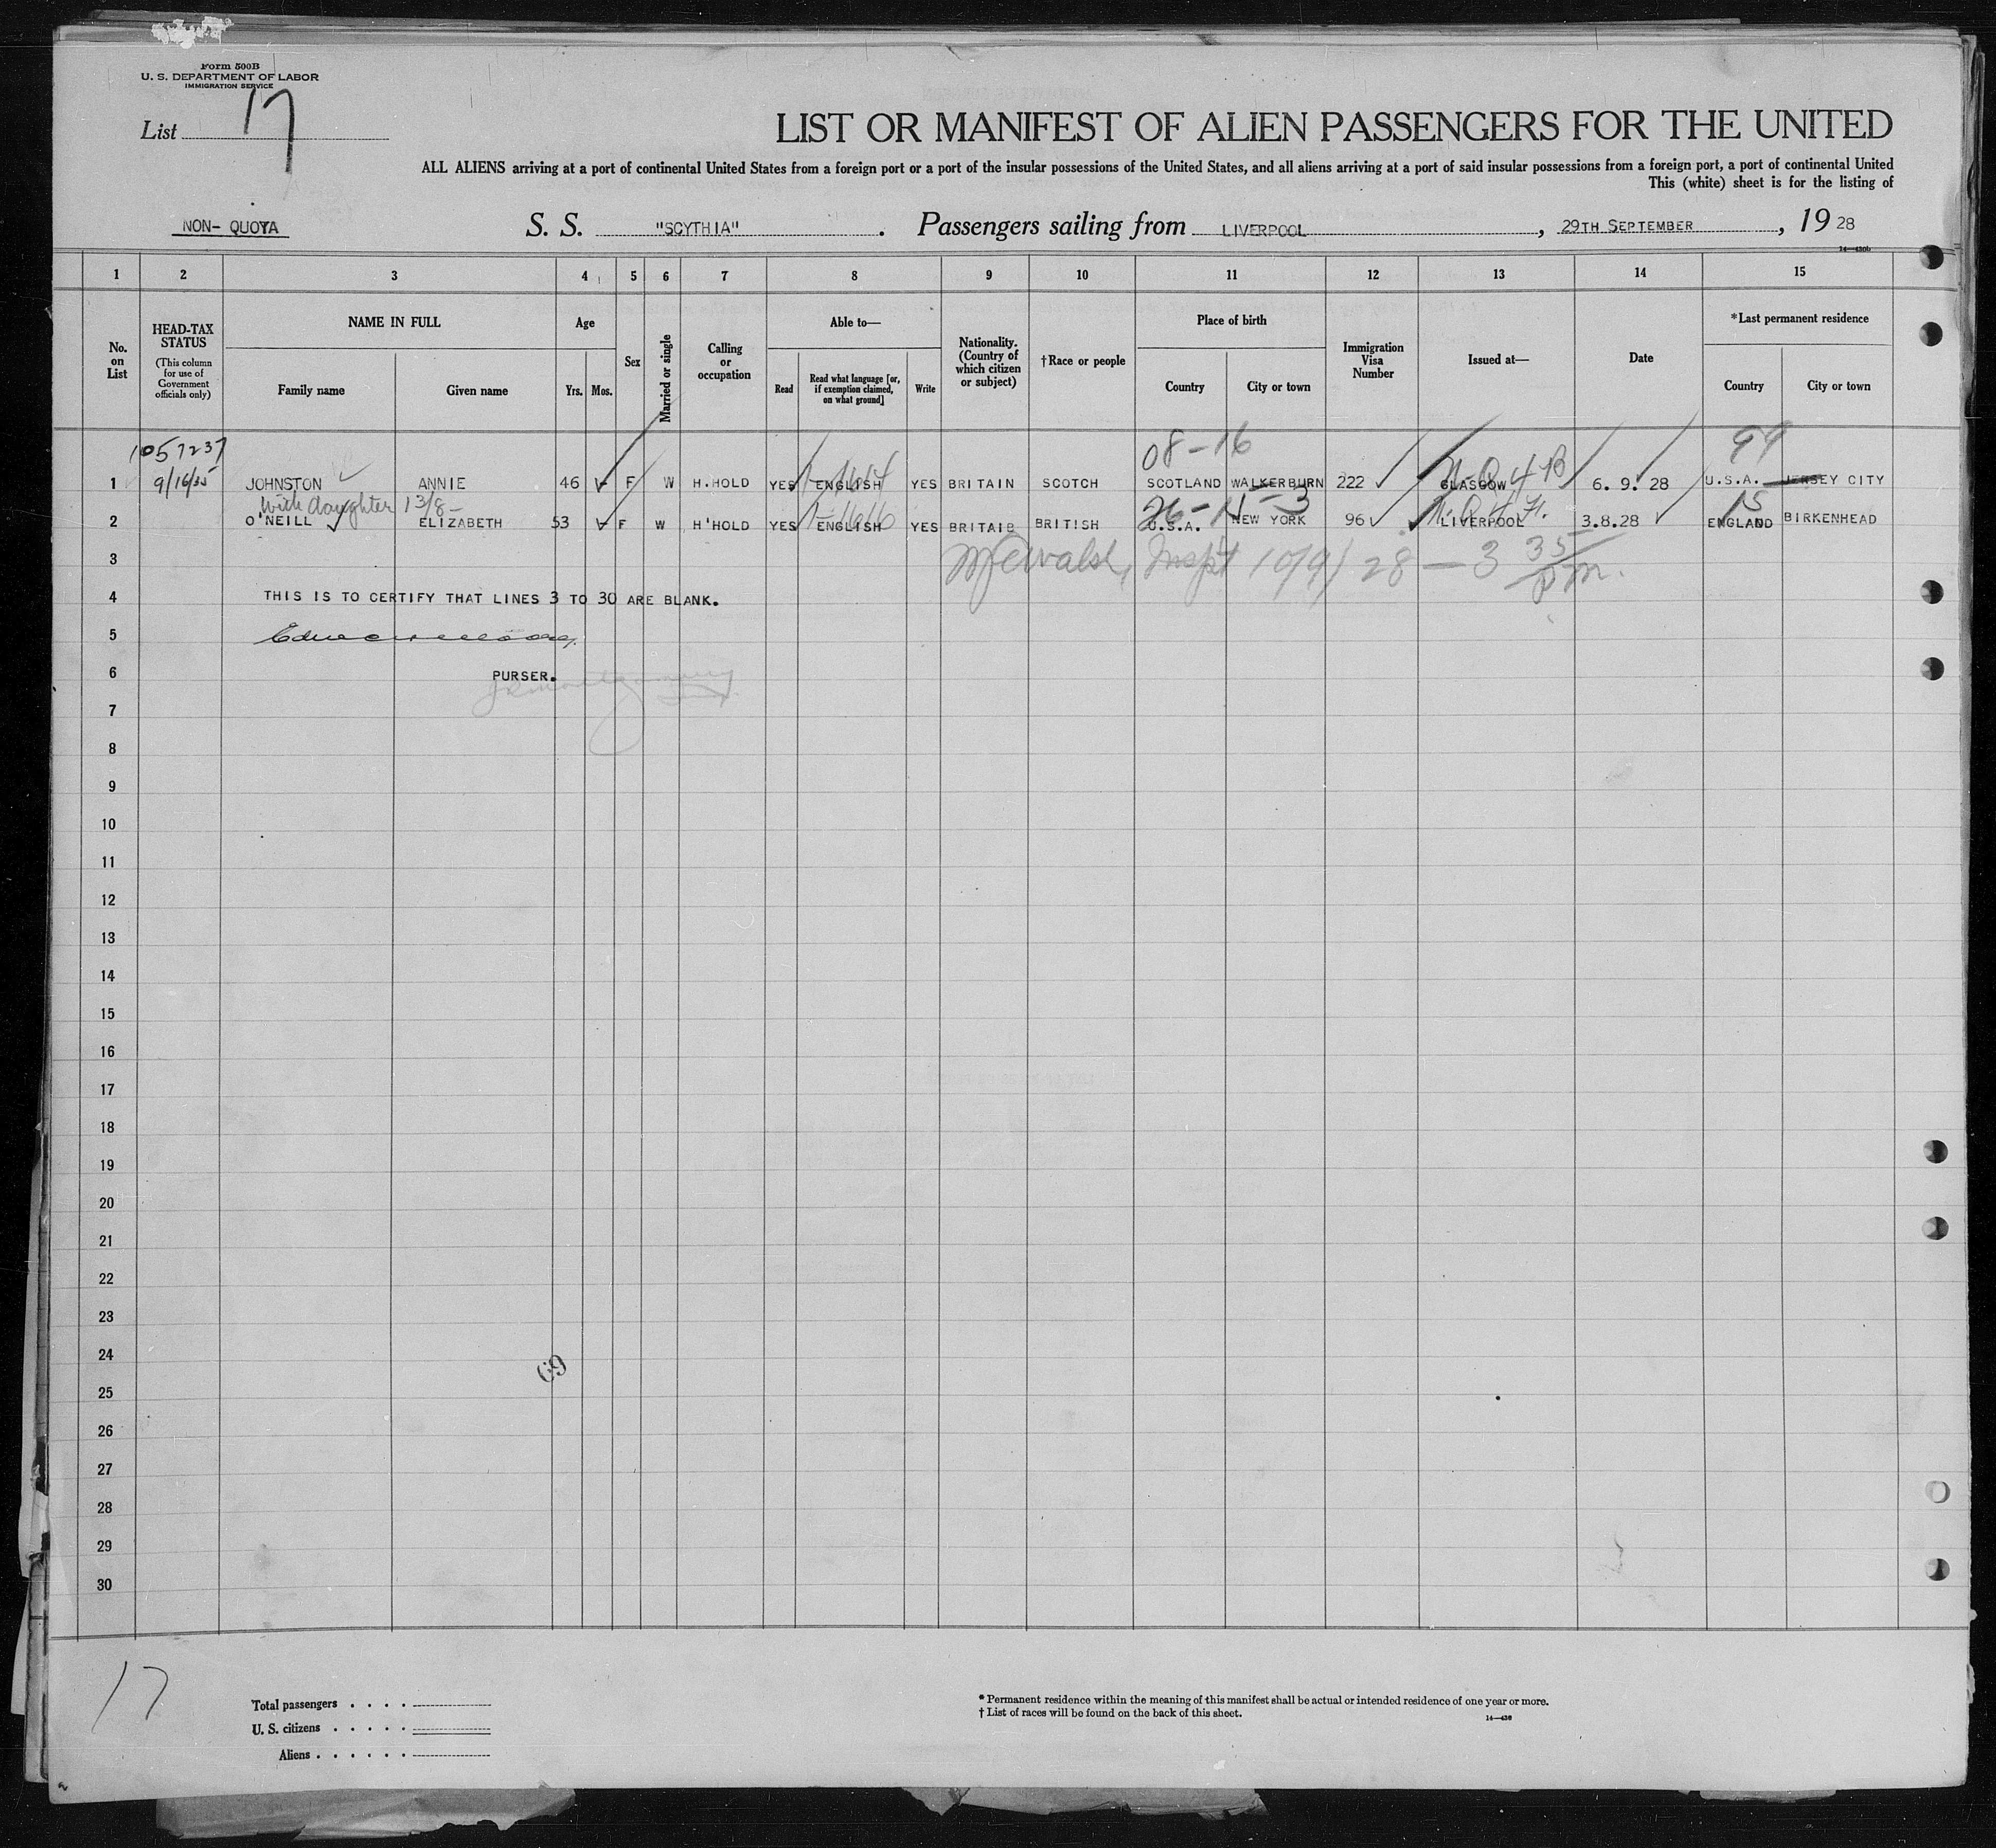 Form 500B
U. S. DEPARTMENT OF LABOR
IMMIGRATION SERVICE
List 17
LIST OR MANIFEST OF ALIEN PASSENGERS FOR THE UNITED
ALL ALIENS arriving at a port of continental United States from a foreign port or a port of the insular possessions of the United States, and all aliens arriving at a port of said insular possessions from a foreign port, a port of continental United
This (white) sheet is for the listing of
NON- QUOTA S. S. "SCYTHIA" . Passengers sailing from LIVERPOOL , 29TH SEPTEMBER , 19 28
14—430b
1 2 3 4 5 6 7 8 9 10 11 12 13 14 15
No. on List
HEAD-TAX STATUS
(This column for use of Government officials only)
NAME IN FULL
Family name Given name
Age
Yrs. Mos.
Sex
Married or single
Calling or occupation
Able to—
Read Read what language [or, if exemption claimed, on what ground] Write
Nationality. (Country of which citizen or subject)
†Race or people
Place of birth
Country City or town
Immigration Visa Number
Issued at—
Date
*Last permanent residence
Country City or town
1057237 08-16 99
1 9/16/35 JOHNSTON ANNIE 46 F W H.HOLD YES ENGLISH YES BRITAIN SCOTCH SCOTLAND WALKERBURN 222 GLASGOW 6. 9. 28 U.S.A. JERSEY CITY
With daughter 1 3/8-
2 O'NEILL ELIZABETH 53 F W H'HOLD YES ENGLISH YES BRITAIB BRITISH U.S.A. NEW YORK 96 LIVERPOOL 3.8.28 ENGLAND BIRKENHEAD
3 Walsh, Inspt 10/9/28 — 3 35/pm.
4 THIS IS TO CERTIFY THAT LINES 3 TO 30 ARE BLANK.
5
6 PURSER.
7
8
9
10
11
12
13
14
15
16
17
18
19
20
21
22
23
24
69
25
26
27
28
29
30
17
Total passengers . . . .
U. S. citizens . . . . .
Aliens . . . . . .
* Permanent residence within the meaning of this manifest shall be actual or intended residence of one year or more.
† List of races will be found on the back of this sheet.
14—430